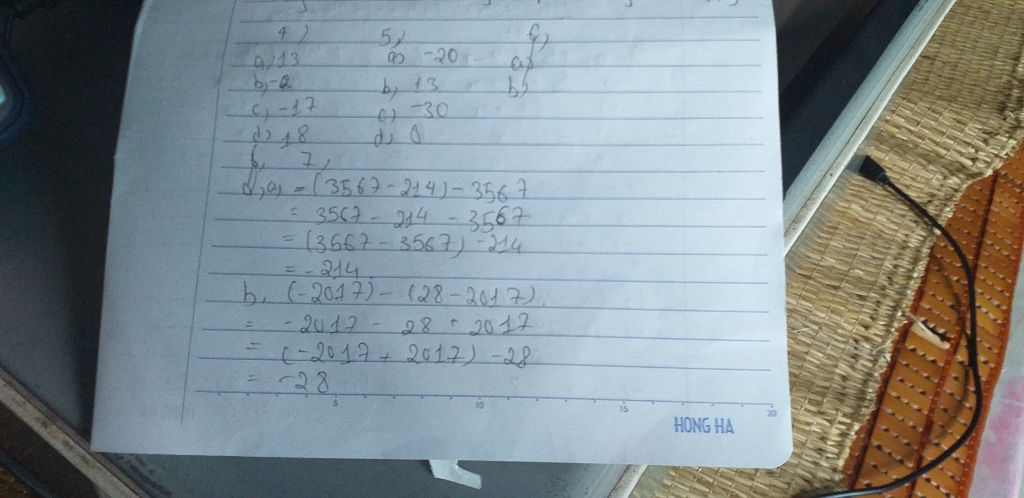 4) 5, 6,
a, 13 a, -20 a,
b, -2 b, 13 b,
c, -17 c, -30
d, 18 d, 0
7,
a, = (3567 - 214) - 3567
= 3567 - 214 - 3567
= (3567 - 3567) - 214
= -214
b. (-2017) - (28 - 2017).
= -2017 - 28 + 2017
= (-2017 + 2017) - 28
= -28
5 10 15 20
HONG HA